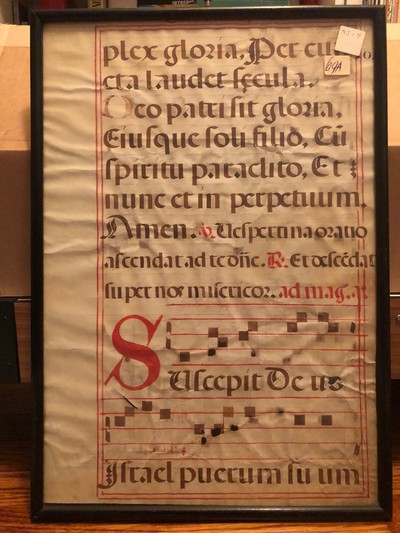 plex gloria, Per cu
cta laudet secula.
Deo patri sit gloria,
Eiusque soli filio, Cũ
spiritu paraclito, Et
nunc et in perpetuum.
Amen. ℣. Uespertina oratio
ascendat ad te dñe. ℟. Et descẽdat
super nos misericor. ad mag. a.
SUscepit Deus
Israel puerum suum